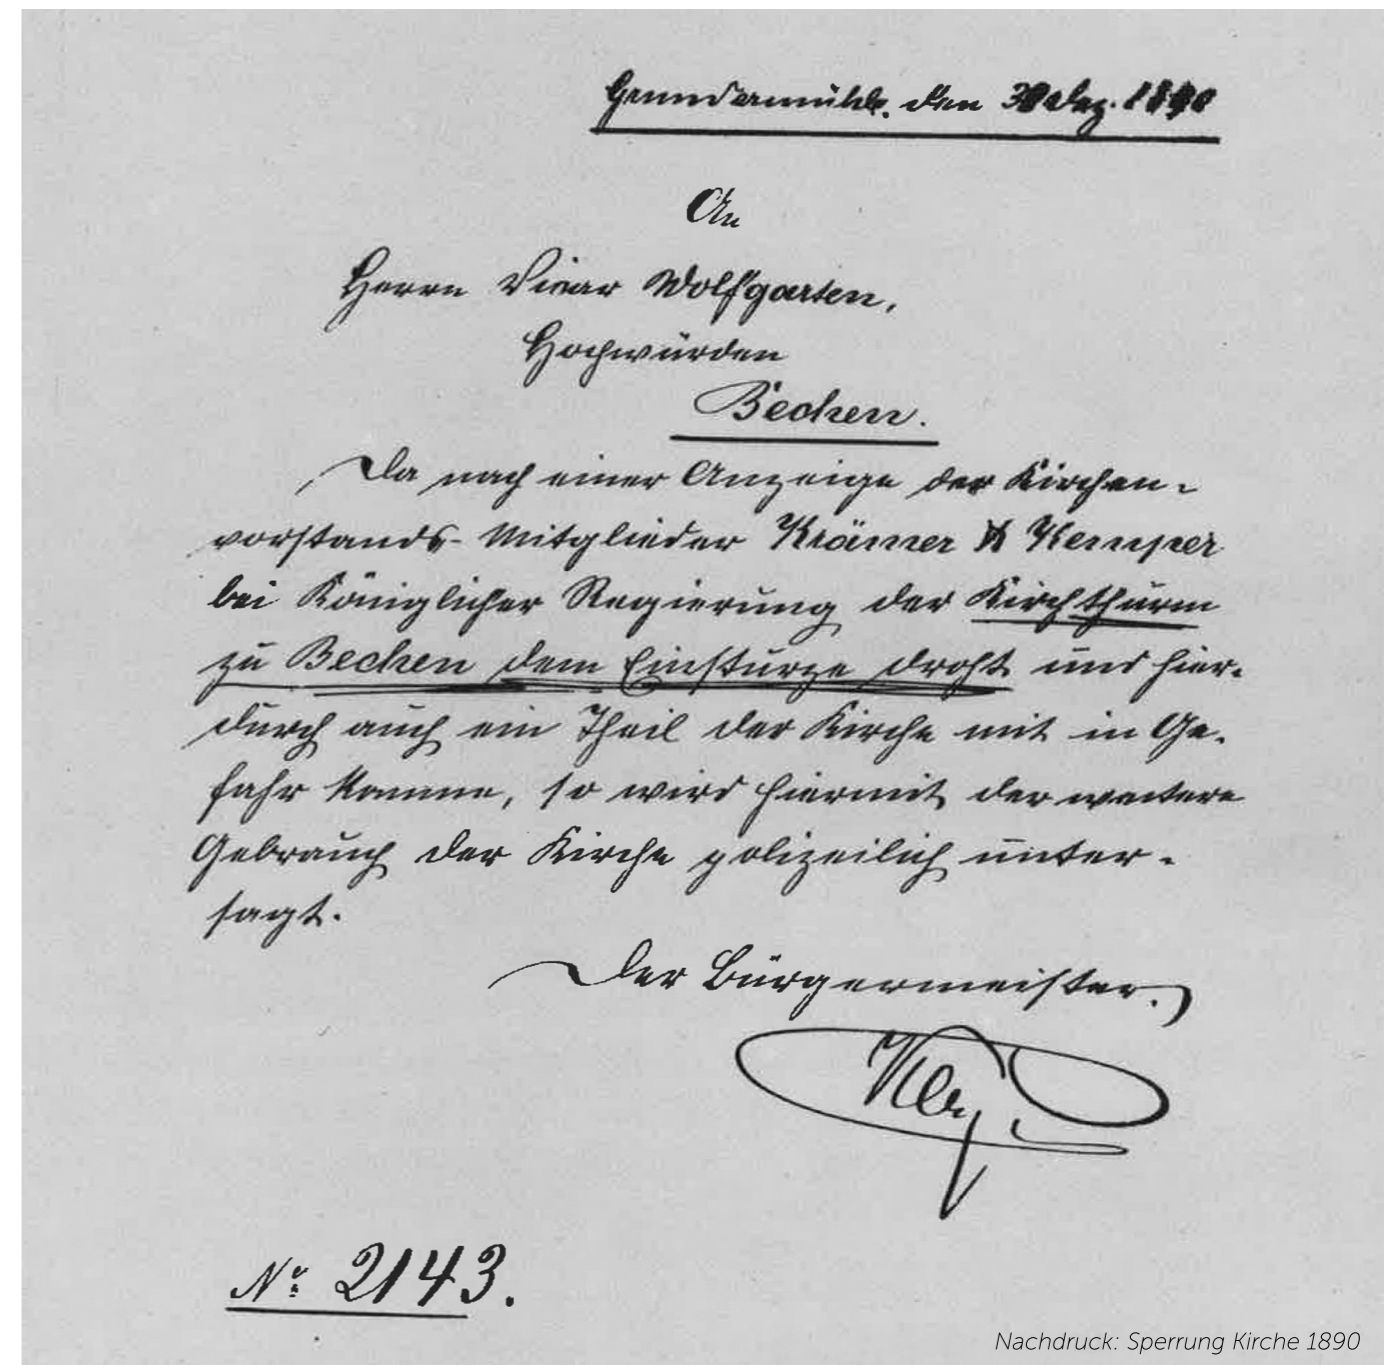 Grundermühle, den 30 Dez. 1890
An
Herrn Vicar Wolfgarten,
Hochwürden
Bechen.
Da nach einer Anzeige der Kirchen-
vorstands-Mitglieder Krämer & Kemper
bei Königlicher Regierung der Kirchthurm
zu Bechen dem Einsturze droht und hier-
durch auch ein Theil der Kirche mit in Ge-
fahr komme, so wird hiermit der weitere
Gebrauch der Kirche polizeilich unter-
sagt.
Der Bürgermeister.
No. 2143.
Nachdruck: Sperrung Kirche 1890